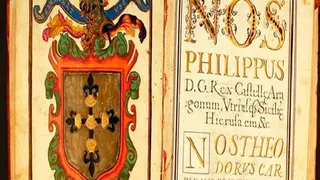 NOS
PHILIPPUS
D. G. Rex Castelle, Ara
gonum, Vtriusq. Sicilie,
Hierusalem &c.
NOS THEO
DORUS CAR